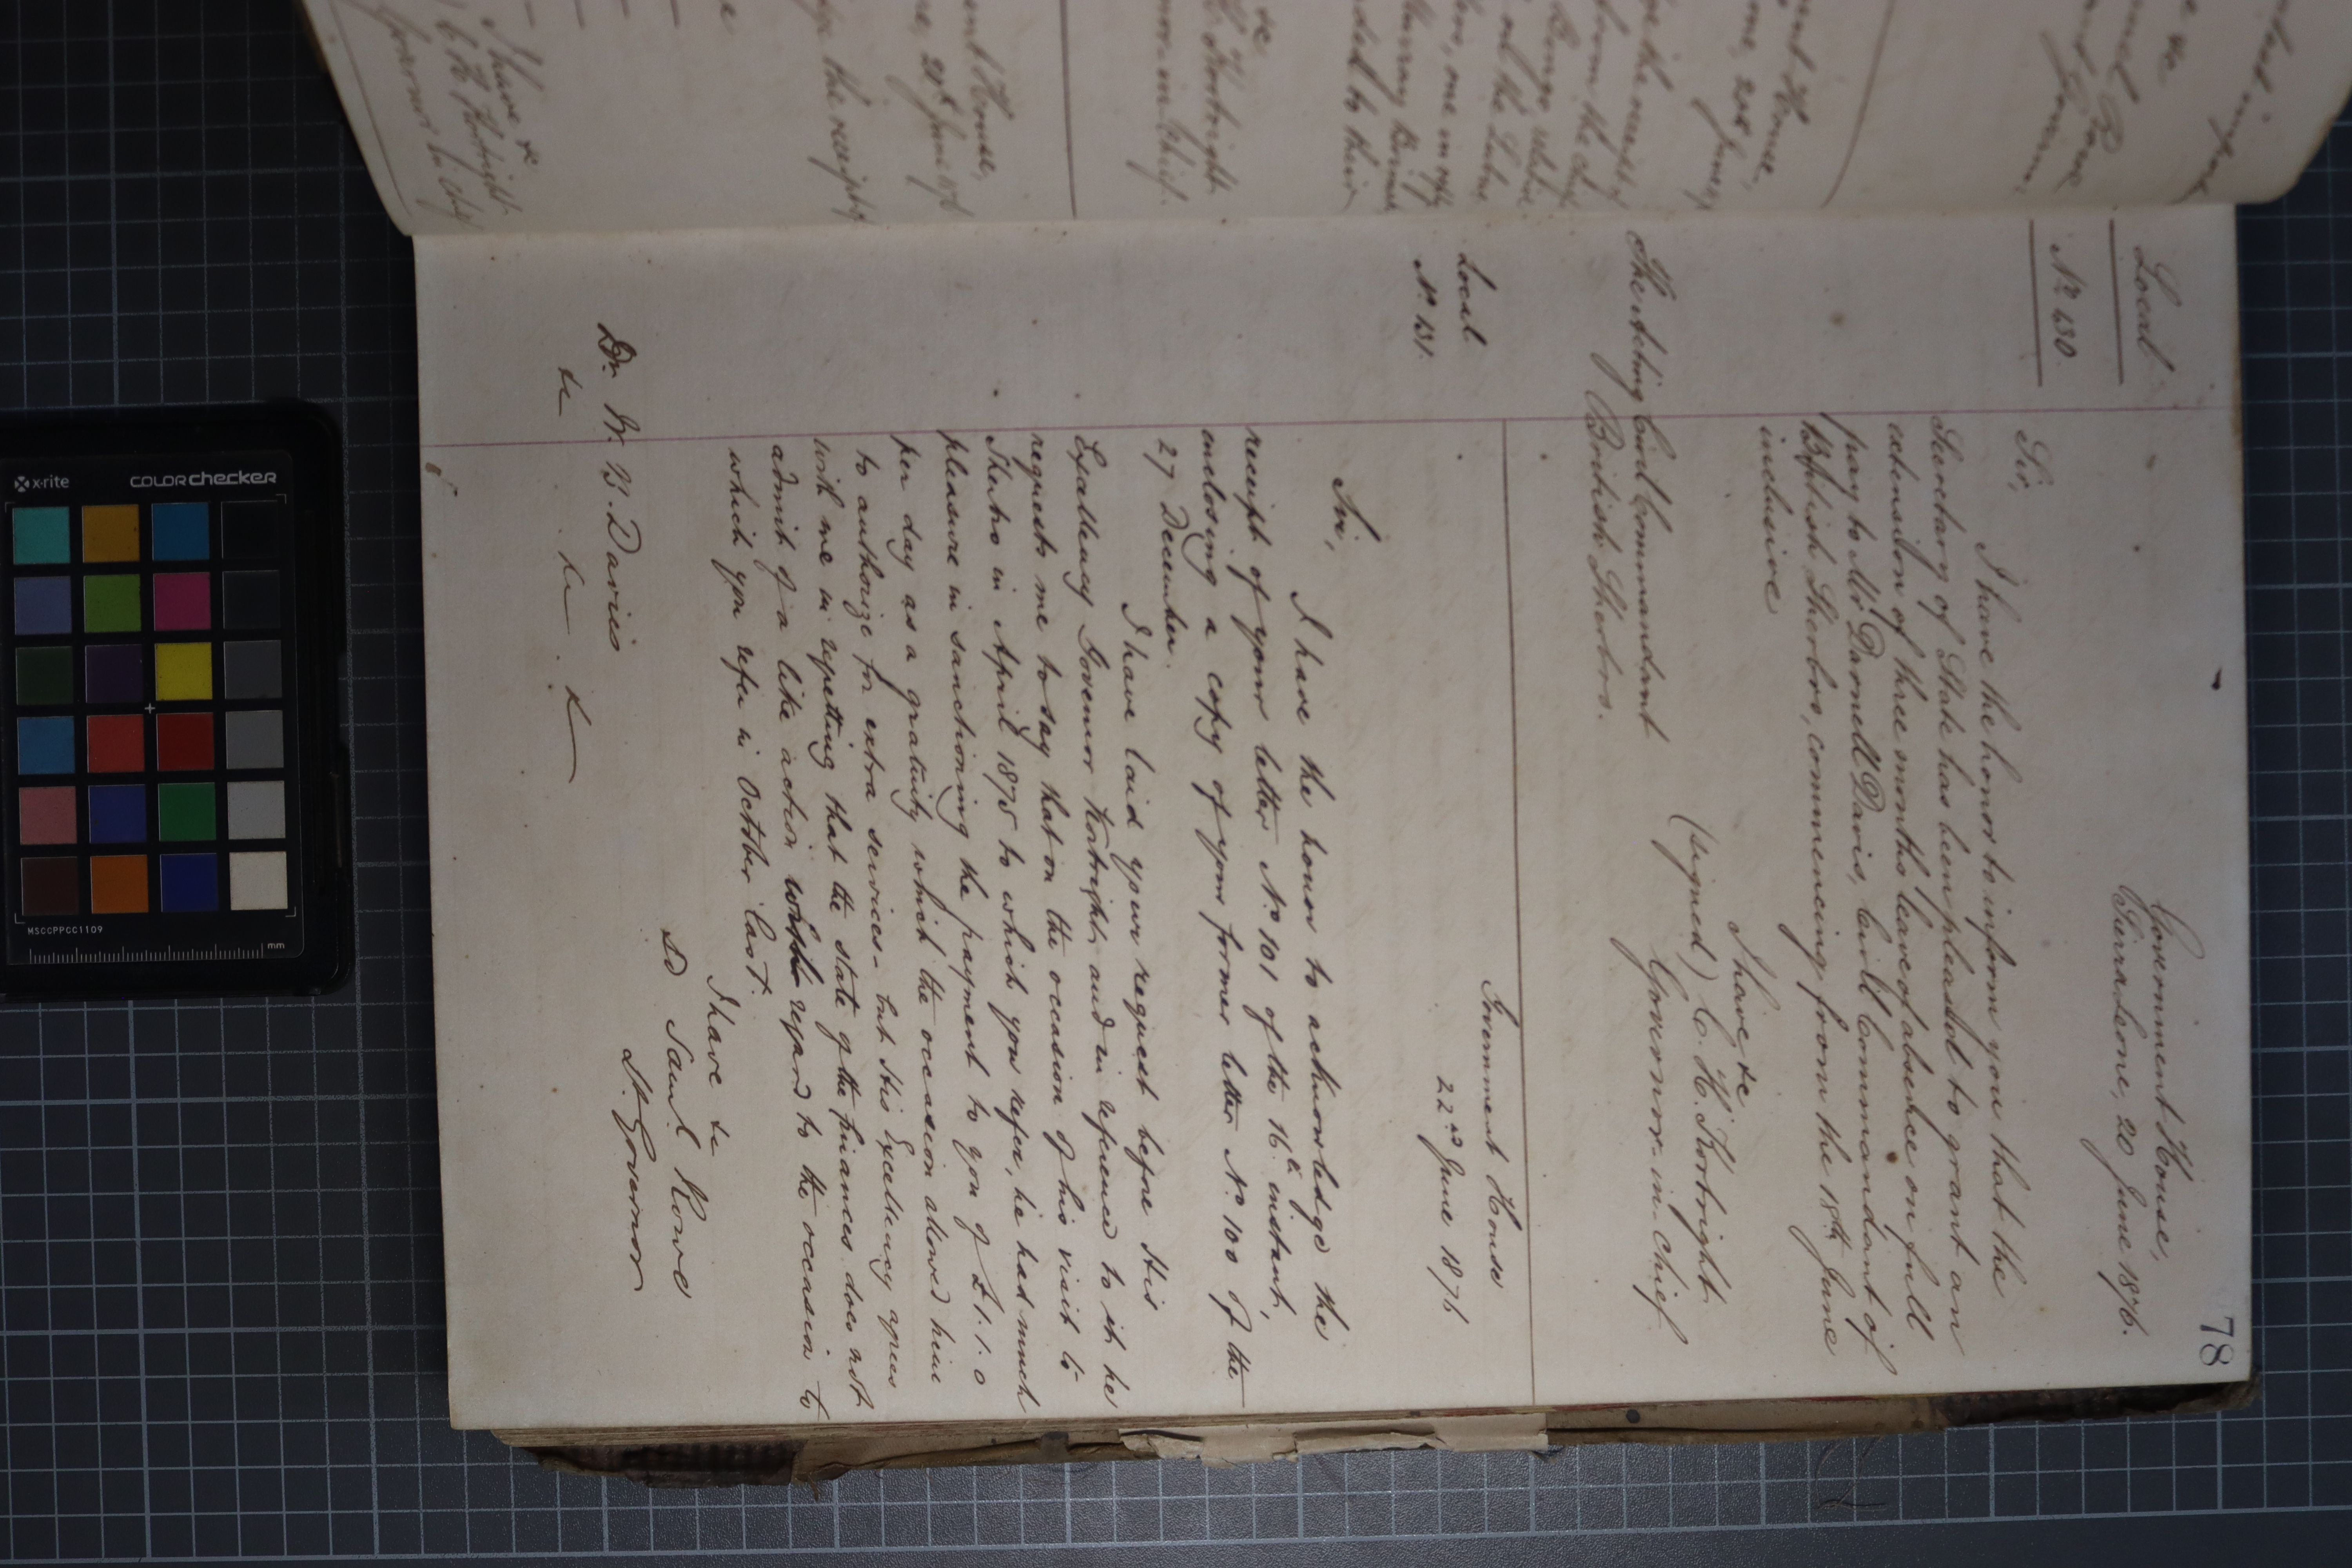 78
Local
No. 130.
Government House,
Sierra Leone, 20 June 1876.
Sir,
I have the honor to inform you that the
Secretary of State has been pleased to grant an
extension of three months leave of absence on full
pay to Mr Darnell Davis, Civil Commandant of
British Sherbro, commencing from the 18th June
inclusive
I have &c
(signed) C. H. Kortright
Governor-in-Chief
The Acting Civil Commandant
British Sherbro.
Local
No. 131.
Government House
22nd June 1876
Sir,
I have the honor to acknowledge the
receipt of your letter No. 101 of the 16th instant,
enclosing a copy of your former letter No. 100 of the
27 December.
I have laid your request before His
Excellency Governor Kortright and in reference to it he
requests me to say that on the occasion of his visit to
Sherbro in April 1875 to which you refer, he had much
pleasure in sanctioning the payment to you of £1.1.0
per day as a gratuity which the occasion allowed him
to authorize for extra services - but His Excellency agrees
with me in regretting that the state of the finances does not
admit of a like action with regard to the occasion to
which you refer in October last.
I have &c
SD Saml Rowe
Lt. Governor
Dr. W. B. Davies
&c &c &c
I have &c
C H Kortright
Governor in Chief
the receipt
ent House,
Kortright
nor in Chief.
ded to their
from the
ge the receipt of
ent House,
x-rite
colorchecker
MSCCPPCC1109
mm